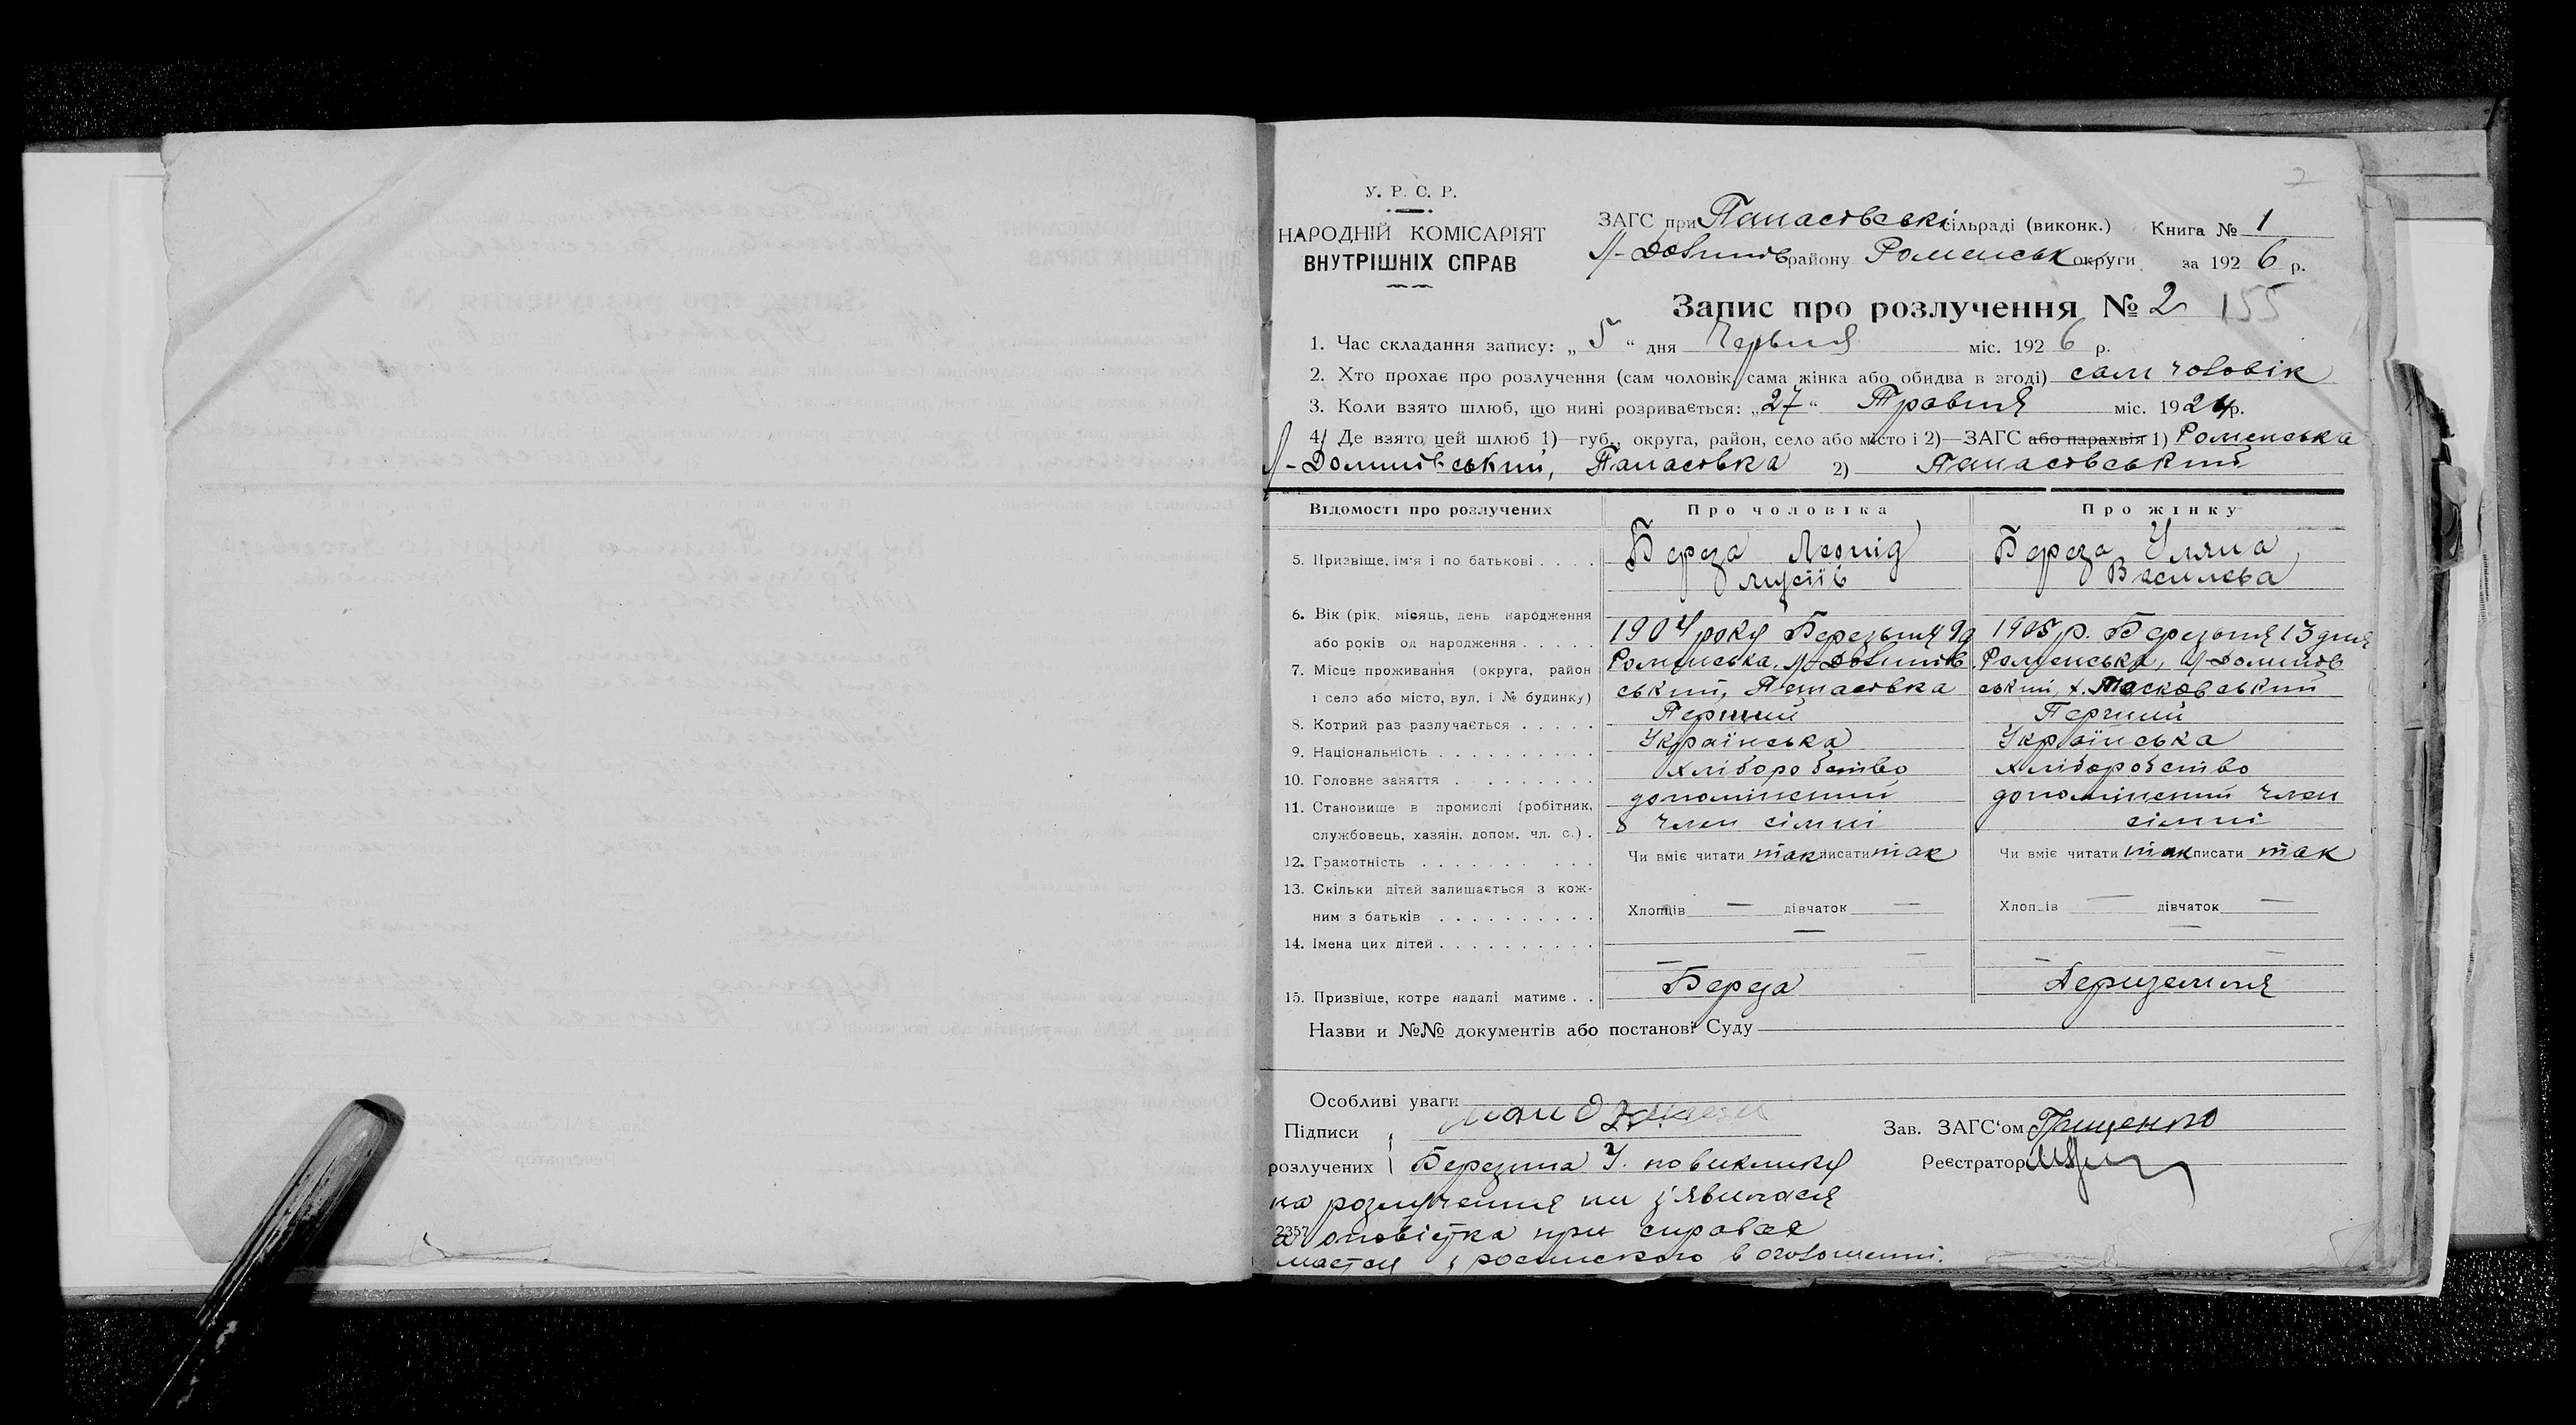 2
У. Р. С. Р.
НАРОДНІЙ КОМІСАРІЯТ
ВНУТРІШНІХ СПРАВ
ЗАГС при Панасовські сільраді (виконк.) Книга № 1
району Роменськ округи за 1926 р.
Запис про розлучення № 2 155
1. Час складання запису: „5“ дня Червня міс. 1926 р.
2. Хто прохає про розлучення (сам чоловік, сама жінка або обидва в згоді) сам чоловік
3. Коли взято шлюб, що нині розривається: „27“ Травня міс. 1924 р.
4. Де взято цей шлюб 1)—губ., округа, район, село або місто і 2)—ЗАГС або парахвія 1) Роменська
Панасовка 2) Панасовський
Відомості про розлучених Про чоловіка Про жінку
5. Призвіще, ім'я і по батькові . . . . Береза Леонід Береза Уляна
Василева
6. Вік (рік, місяць, день народження
або років од народження . . . . . 1904 року Березьня 9д 1905 р. Березьня 13 дня
7. Місце проживання (округа, район Роменська, Роменська,
і село або місто, вул. і № будинку) ський, Панасовка ський, х. Московський
8. Котрий раз разлучається . . . . . Перший Перший
9. Національність . . . . . . . . . . Українська Українська
10. Головне заняття . . . . . . . . Хліборобство Хліборобство
11. Становище в промислі (робітник, допоміжний допоміжний член
службовець, хазяін, допом. чл. с.) . член сімьї сімьї
12. Грамотність . . . . . . . . . . Чи вміє читати так писати так Чи вміє читати так писати так
13. Скільки дітей залишається з кож-
ним з батьків . . . . . . . . . . Хлопців — дівчаток — Хлопців — дівчаток —
14. Імена цих дітей . . . . . . . . . . — —
15. Призвіще, котре надалі матиме . . Береза
Назви и №№ документів або постанові Суду
Особливі уваги
Підписи Зав. ЗАГС'ом Грищенко
розлучених Березина У. по виклику Реєстратор
на розлучення ни зʼявилася
2357 а повістка при справах
мастей з роспискою в оголошенні.